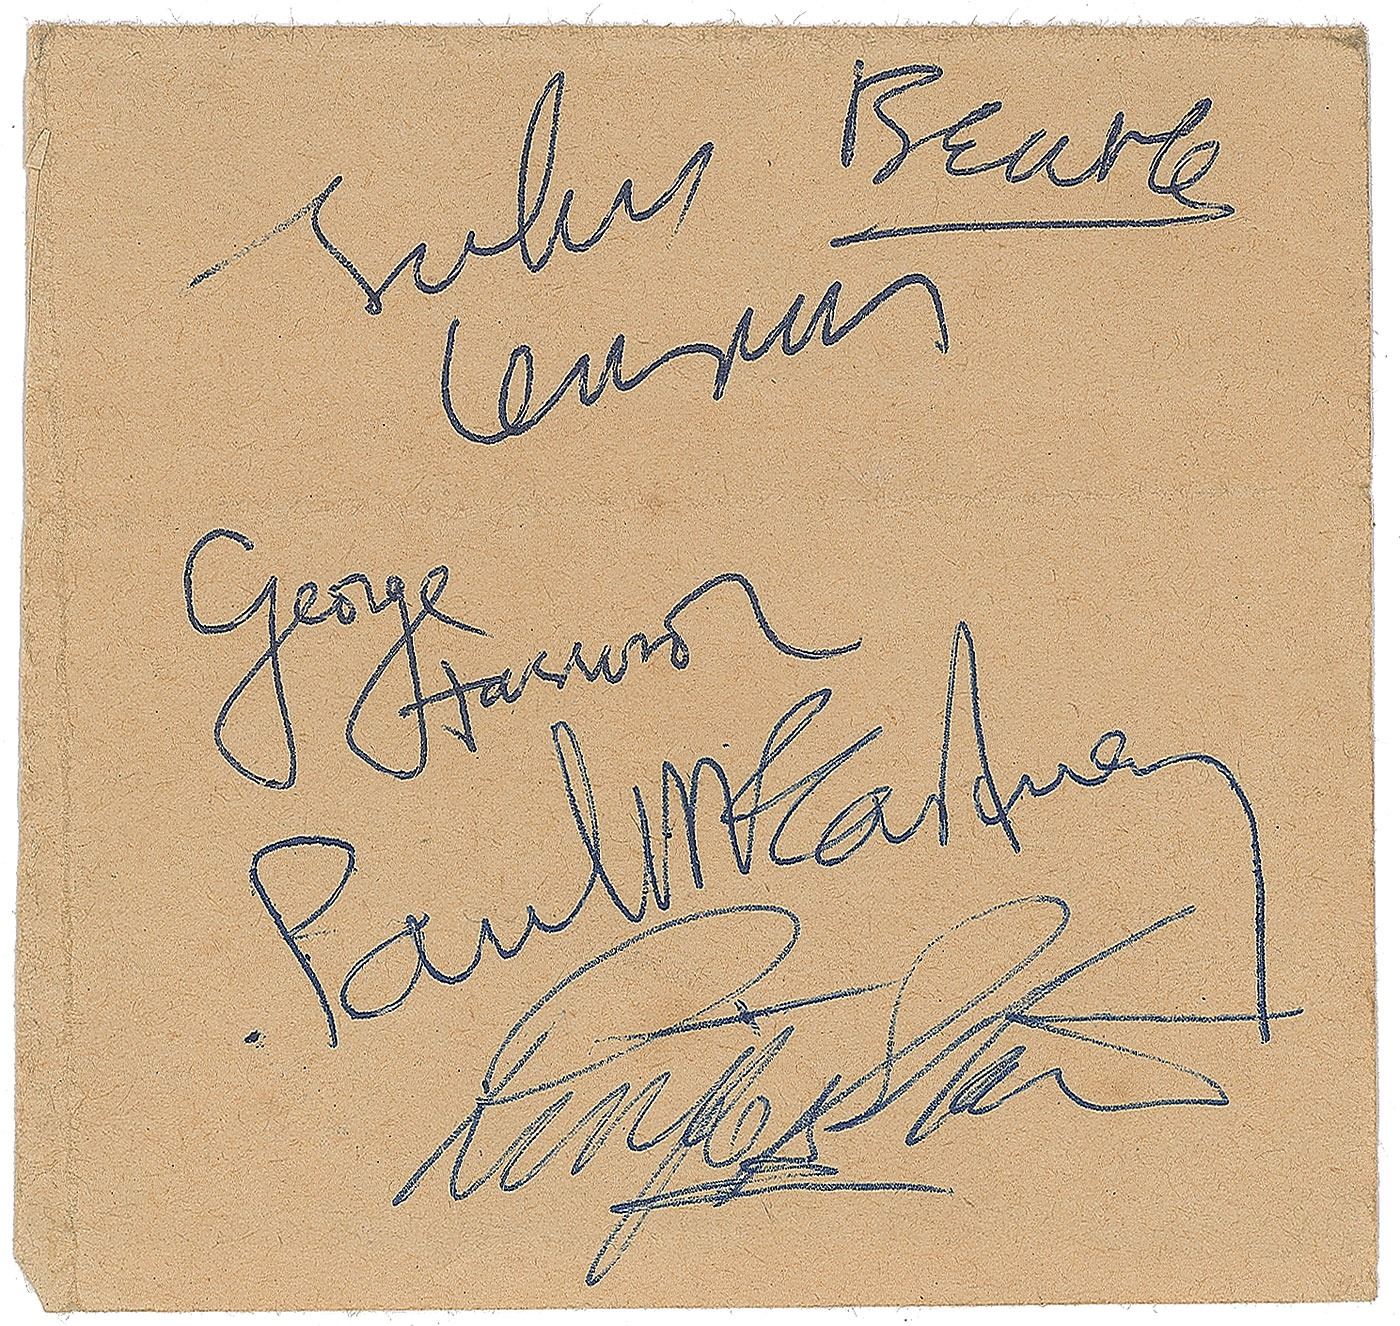 John Beatle
Lennon
George
Harrison
Paul McCartney
Ringo Starr